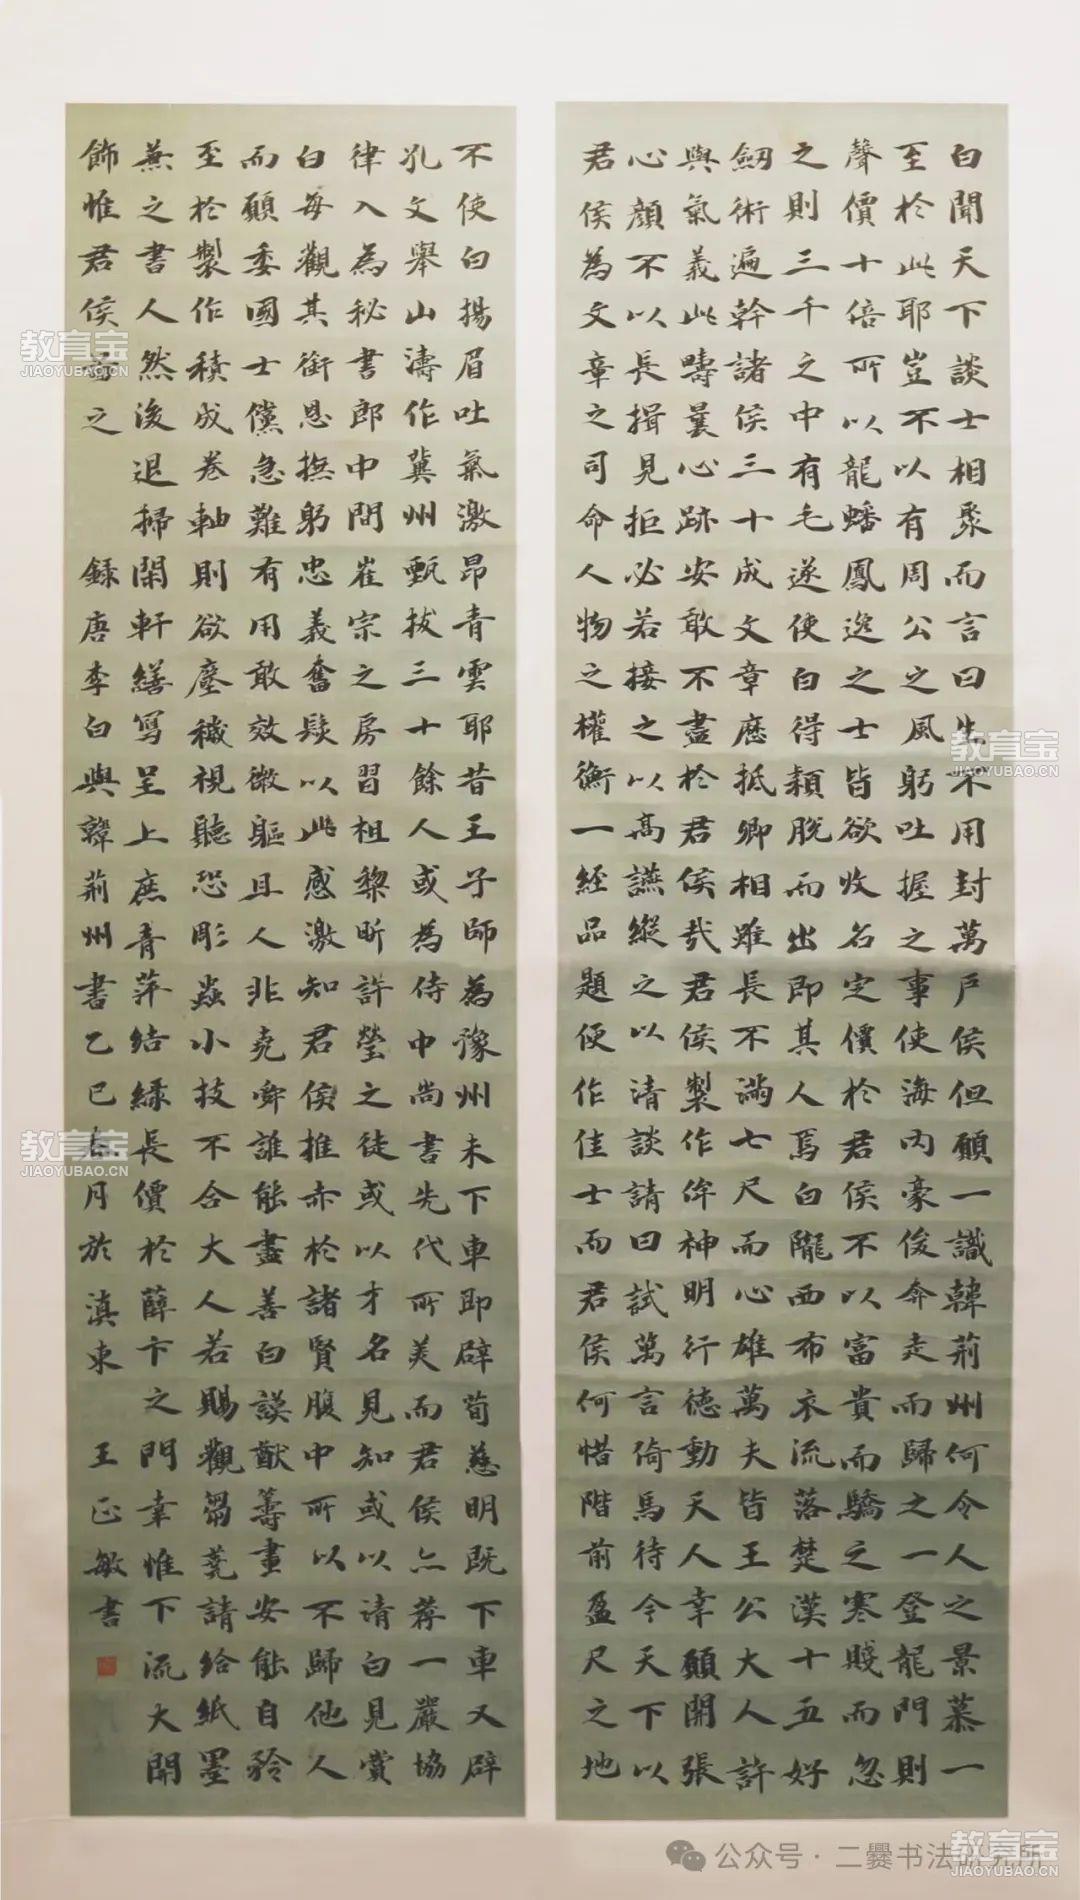 白聞天下談士相聚而言曰生不用封萬戶侯但願一識韓荊州何令人之景慕一
至於此耶豈不以有周公之風躬吐握之事使海內豪俊奔走而歸之一登龍門則
聲價十倍所以龍蟠鳳逸之士皆欲收名定價於君侯不以富貴而驕之寒賤而忽
之則三千之中有毛遂使白得穎脫而出即其人焉白隴西布衣流落楚漢十五好
劒術遍幹諸侯三十成文章歷抵卿相雖長不滿七尺而心雄萬夫皆王公大人許
與氣義此疇曩心跡安敢不盡於君侯哉君侯製作侔神明行德動天人幸願開張
心顏不以長揖見拒必若接之以高讌縱之以清談請日試萬言倚馬待今天下以
君侯為文章之司命人物之權衡一經品題便作佳士而君侯何惜階前盈尺之地
不使白揚眉吐氣激昂青雲耶昔王子師為豫州未下車即辟荀慈明既下車又辟
孔文舉山濤作冀州甄拔三十餘人或為侍中尚書先代所美而君侯亦荐一嚴協
律入為秘書郎中間崔宗之房習祖黎昕許瑩之徒或以才名見知或以清白見賞
白每觀其銜恩撫躬忠義奮髮以此感激知君侯推赤於諸賢腹中所以不歸他人
而願委國士儻急難有用敢效微軀且人非堯舜誰能盡善白謨猷籌畫安能自矜
至於製作積成卷軸則欲塵穢視聽恐彫蟲小技不合大人若賜觀芻蕘請給紙墨
兼之書人然後退掃閑軒繕寫呈上庶青萍結綠長價於薛卞之門幸惟下流大開
飾惟君侯之 錄唐李白與韓荊州書乙巳春月於滇東 王正敏書
教育宝
JIAOYUBAO.CN
教育宝
JIAOYUBAO.CN
教育宝
JIAOYUBAO.CN
公众号·二爨书法研究所
教育宝
JIAOYUBAO.CN